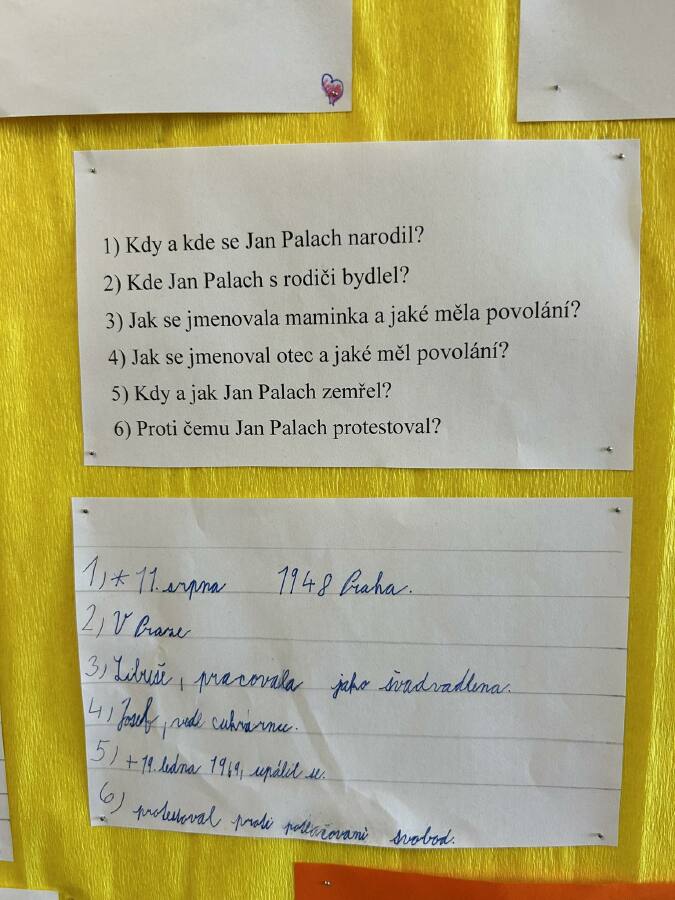 1) Kdy a kde se Jan Palach narodil?
2) Kde Jan Palach s rodiči bydlel?
3) Jak se jmenovala maminka a jaké měla povolání?
4) Jak se jmenoval otec a jaké měl povolání?
5) Kdy a jak Jan Palach zemřel?
6) Proti čemu Jan Palach protestoval?
1) * 11. srpna 1948 Praha.
2) V Praze
3) Libuše, pracovala jako švadvadlena.
4) Josef, vedl cukrárnu.
5) + 19. ledna 1969, upálil se.
6) protestoval proti potlačovaní svobod.